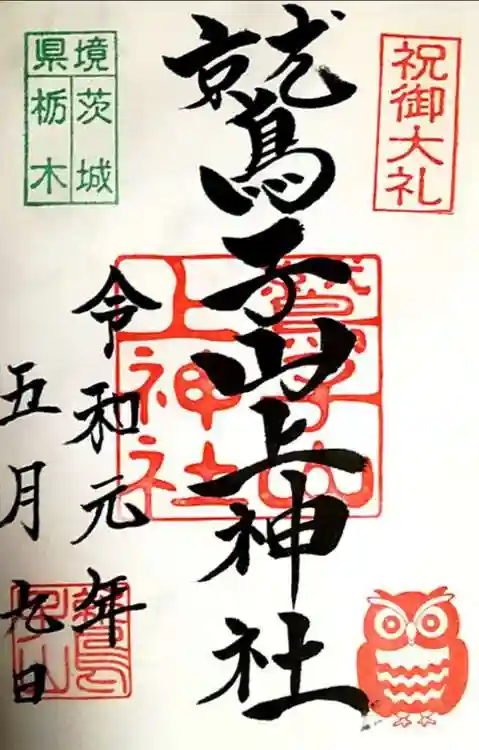 祝御大礼
鷲子山上神社
鷲子山
上神社
令和元年
五月九日
県境
茨城
栃木